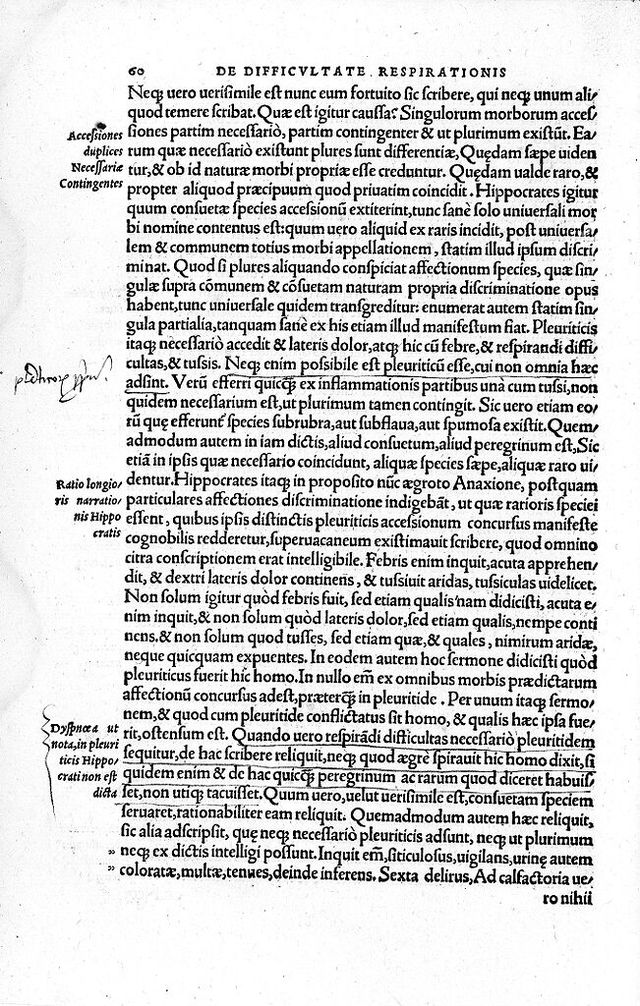 60 DE DIFFICVLTATE RESPIRATIONIS
Neq; uero uerisimile est nunc eum fortuito sic scribere, qui neq; unum ali/
quod temere scribat. Quæ est igitur caussa? Singulorum morborum acces/
Accessiones
duplices
Necessariæ
Contingentes
siones partim necessariò, partim contingenter & ut plurimum existũt. Ea/
rum quæ necessariò existunt plures sunt differentiæ, Quędam sæpe uiden
tur, & ob id naturæ morbi propriæ esse creduntur. Quędam ualde raro, &
propter aliquod præcipuum quod priuatim coincidit. Hippocrates igitur
quum consuetæ species accessionũ extiterint, tunc sanè solo uniuersali mor
bi nomine contentus est: quum uero aliquid ex raris incidit, post uniuersa/
lem & communem totius morbi appellationem, statim illud ipsum discri/
minat. Quod si plures aliquando conspiciat affectionum species, quæ sin/
gulæ supra cõmunem & cõsuetam naturam propria discriminatione opus
habent, tunc uniuersale quidem transgreditur: enumerat autem statim sin/
gula partialia, tanquam sanè ex his etiam illud manifestum fiat. Pleuriticis
itaq; necessariò accedit & lateris dolor, atq; hic cũ febre, & respirandi diffi/
cultas, & tussis. Neq; enim possibile est pleuriticũ esse, cui non omnia hæc
adsint. Verũ efferri quicq̃ ex inflammationis partibus una cum tussi, non
quidem necessarium est, ut plurimum tamen contingit. Sic uero etiam eo/
rũ quę efferunt species subrubra, aut subflaua, aut spumosa existit. Quem/
admodum autem in iam dictis, aliud consuetum, aliud peregrinum est, Sic
etiã in ipsis quæ necessario coincidunt, aliquæ species sæpe, aliquæ raro ui/
Ratio longio/
ris narratio/
nis Hippo
cratis
dentur. Hippocrates itaq; in proposito nũc ægroto Anaxione, postquam
particulares affectiones discriminatione indigebãt, ut quæ rarioris speciei
essent, quibus ipsis distinctis pleuriticis accessionum concursus manifeste
cognobilis redderetur, superuacaneum existimauit scribere, quod omnino
citra conscriptionem erat intelligibile. Febris enim inquit, acuta apprehen/
dit, & dextri lateris dolor continens, & tussiuit aridas, tussiculas uidelicet.
Non solum igitur quòd febris fuit, sed etiam qualis nam didicisti, acuta e/
nim inquit, & non solum quòd lateris dolor, sed etiam qualis, nempe conti
nens. & non solum quod tusses, sed etiam quæ, & quales, nimirum aridæ,
neque quicquam expuentes. In eodem autem hoc sermone didicisti quòd
pleuriticus fuerit hic homo. In nullo em̃ ex omnibus morbis prædictarum
affectionũ concursus adest, præterq̃ in pleuritide. Per unum itaq; sermo/
nem, & quod cum pleuritide conflictatus sit homo, & qualis hæc ipsa fue/
Dyspnœa ut
nota, in pleuri
ticis Hippo/
crati non est
dicta
rit, ostensum est. Quando uero respirãdi difficultas necessariò pleuritidem
sequitur, de hac scribere reliquit, neq; quod ægrè spirauit hic homo dixit, si
quidem enim & de hac quicq̃ peregrinum ac rarum quod diceret habuis/
set, non utiq; tacuisset. Quum uero, uelut uerisimile est, consuetam speciem
seruaret, rationabiliter eam reliquit. Quemadmodum autem hæc reliquit,
sic alia adscripsit, quę neq; necessariò pleuriticis adsunt, neq; ut plurimum
" neq; ex dictis intelligi possunt. Inquit em̃, siticulosus, uigilans, urinę autem
" coloratæ, multæ, tenues, deinde inferens. Sexta delirus, Ad calfactoria ue/
ro nihil